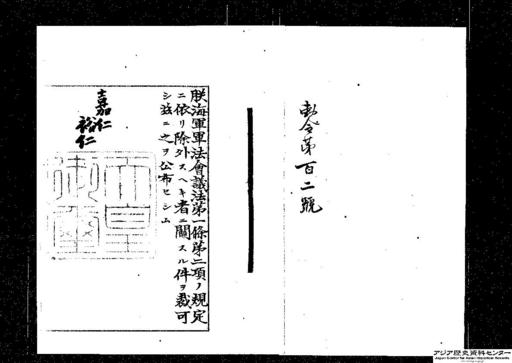 勅令第百二號
朕海軍軍法會議法第一條第二項ノ規定
ニ依リ除外スヘキ者ニ關スル件ヲ裁可
シ玆ニ之ヲ公布セシム
嘉仁
裕仁
天皇御璽
アジア歴史資料センター
Japan Center for Asian Historical Records